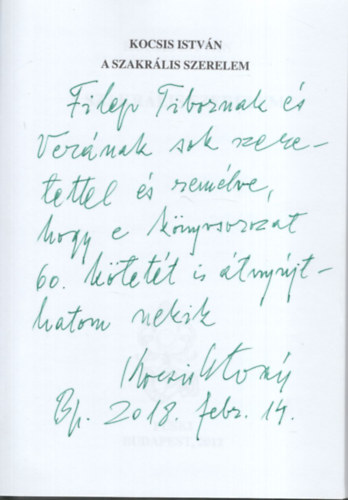 KOCSIS ISTVÁN
A SZAKRÁLIS SZERELEM
Filep Tibornak és
Verának sok szere-
tettel és remélve,
hogy e könyvsorozat
60. kötetét is átnyújt-
hatom nekik
Kocsis István
Bp. 2018. febr. 14.